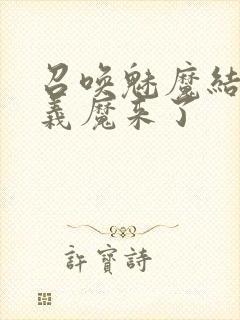 召唤魅魔結
義魔来了
許寶詩